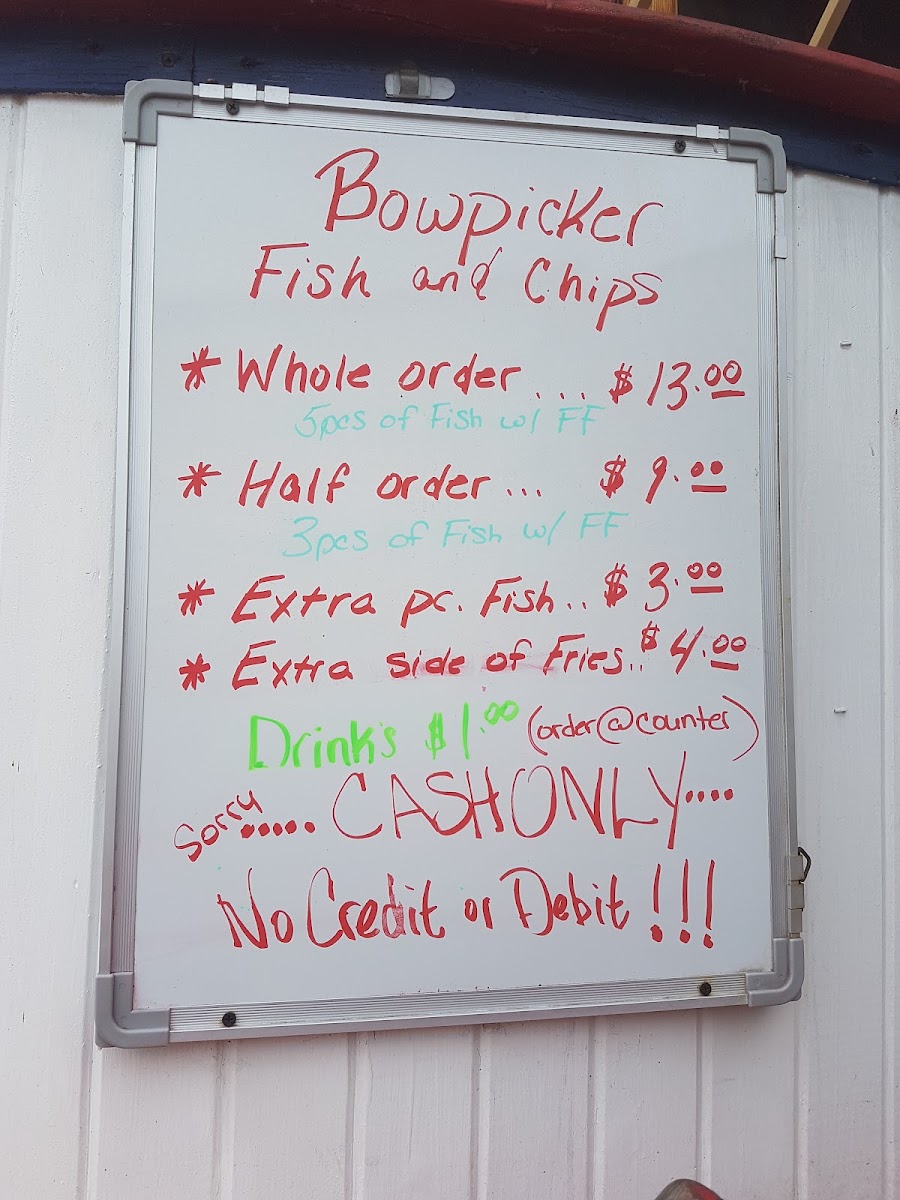 Bowpicker
Fish and Chips
* Whole order ... $13.00
5pcs of Fish w/ FF
* Half order ... $9.00
3pcs of Fish w/ FF
* Extra pc. Fish.. $3.00
* Extra side of Fries.. $4.00
Drink's $1.00 (order@counter)
Sorry..... CASH ONLY....
No Credit or Debit!!!